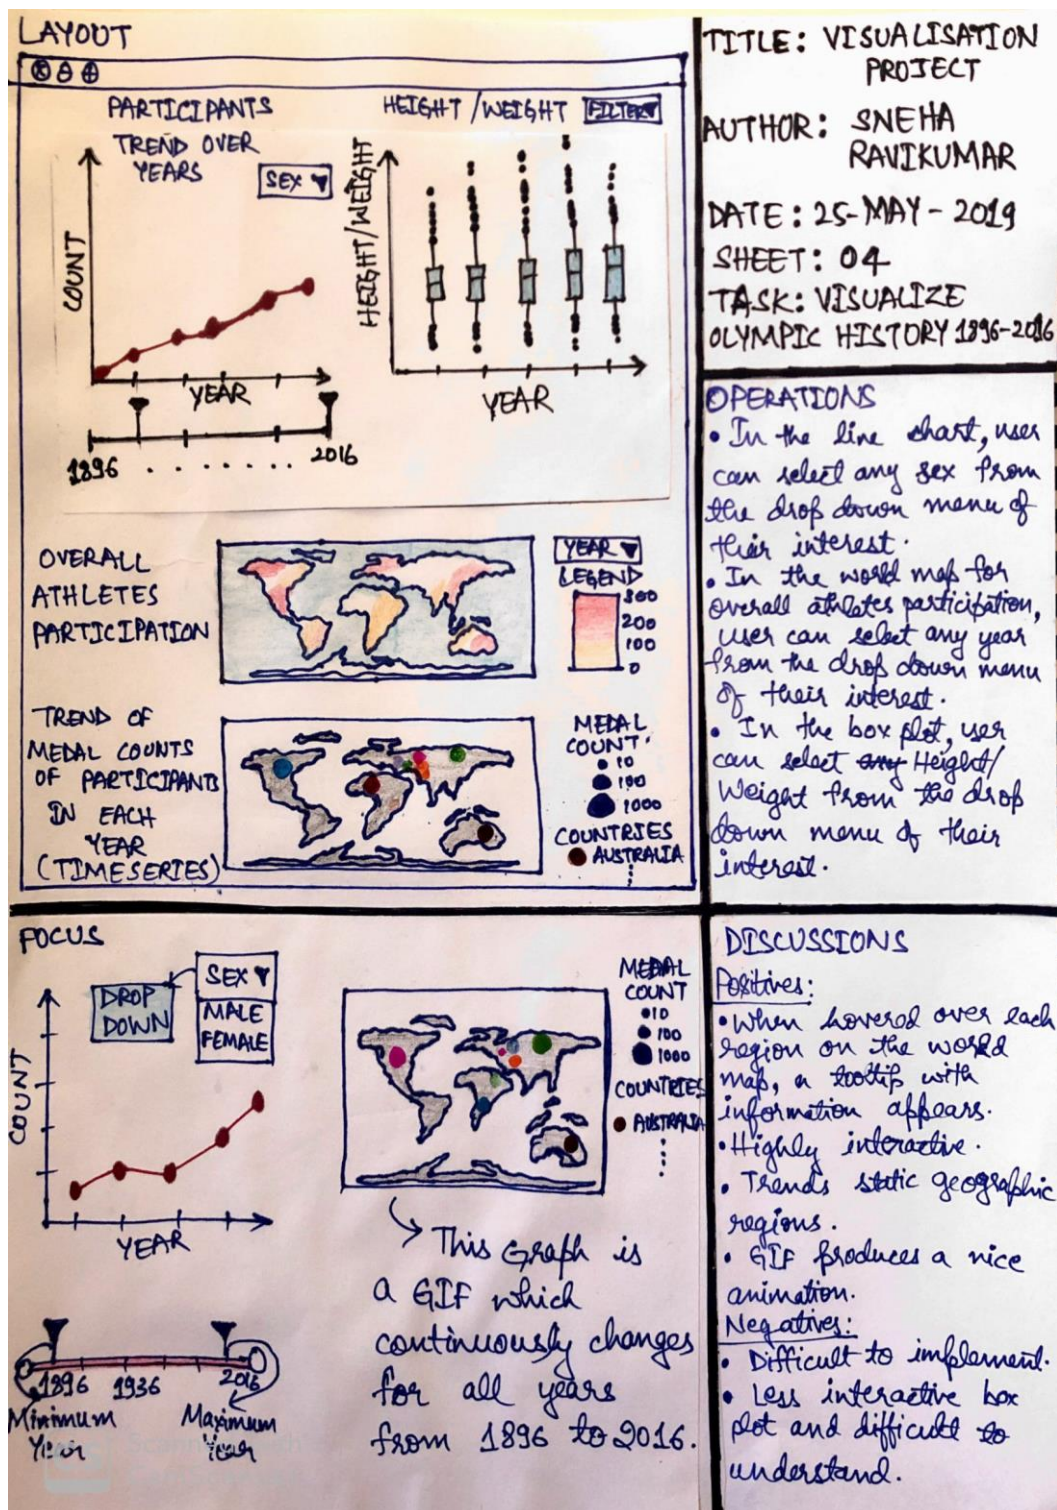 LAYOUT
PARTICIPANTS
TREND OVER
YEARS
SEX
COUNT
YEAR
1896 . . . . . . . 2016
HEIGHT/WEIGHT FILTER
HEIGHT/WEIGHT
YEAR
OVERALL
ATHLETES
PARTICIPATION
YEAR
LEGEND
300
200
100
0
TREND OF
MEDAL COUNTS
OF PARTICIPANTS
IN EACH
YEAR
(TIMESERIES)
MEDAL
COUNT
10
100
1000
COUNTRIES
AUSTRALIA
TITLE: VISUALISATION
PROJECT
AUTHOR: SNEHA
RAVIKUMAR
DATE: 25-MAY-2019
SHEET: 04
TASK: VISUALIZE
OLYMPIC HISTORY 1896-2016
OPERATIONS
• In the line chart, user
can select any sex from
the drop down menu of
their interest.
• In the world map for
overall athletes participation,
user can select any year
from the drop down menu
of their interest.
• In the box plot, user
can select any Height/
Weight from the drop
down menu of their
interest.
FOCUS
DROP
DOWN
SEX
MALE
FEMALE
COUNT
YEAR
1896 1936 2016
Minimum
Year
Maximum
Year
MEDAL
COUNT
10
100
1000
COUNTRIES
AUSTRALIA
This Graph is
a GIF which
continuously changes
for all years
from 1896 to 2016.
DISCUSSIONS
Positives:
• When hovered over each
region on the world
map, a tooltip with
information appears.
• Highly interactive.
• Trends static geographic
regions.
• GIF produces a nice
animation.
Negatives:
• Difficult to implement.
• Less interactive box
plot and difficult to
understand.